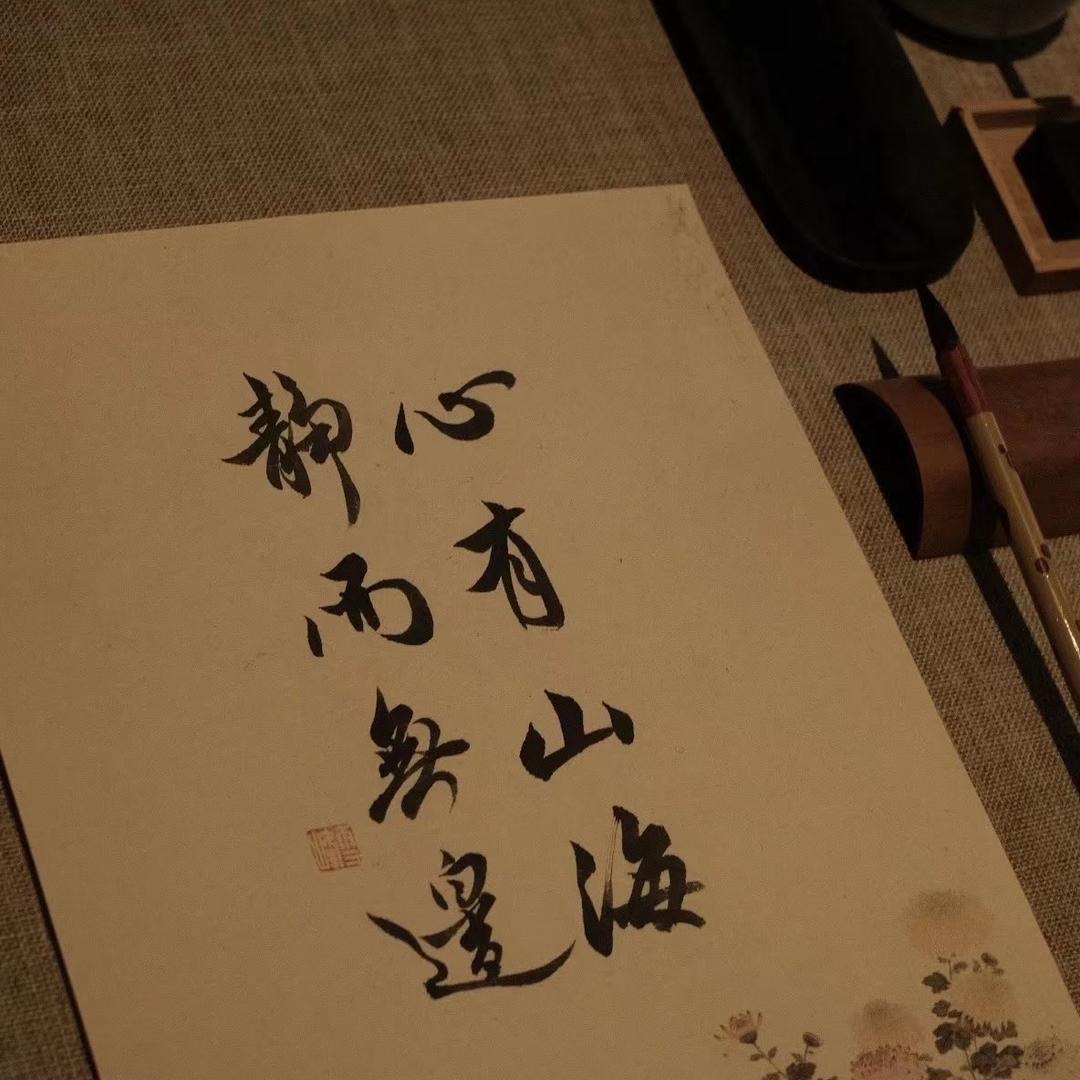 心有山海
靜而無邊